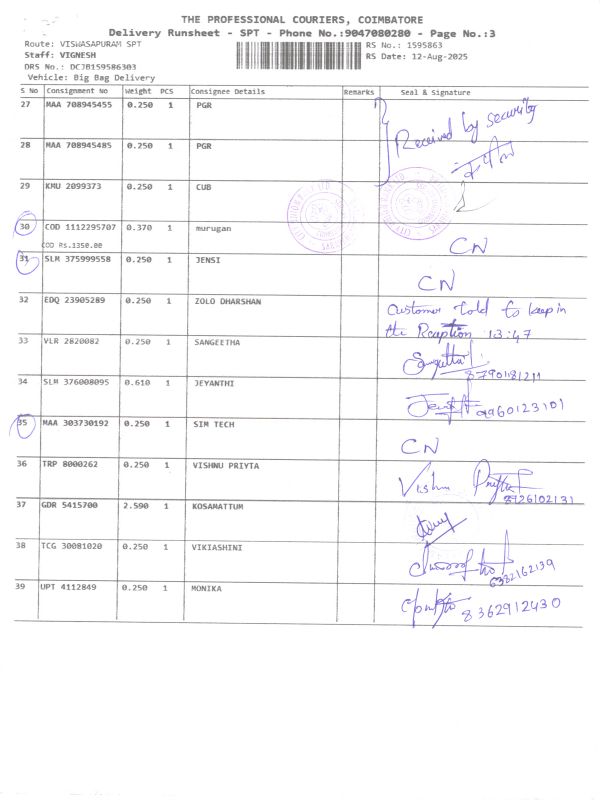 THE PROFESSIONAL COURIERS, COIMBATORE
Delivery Runsheet - SPT - Phone No.:9047080280 - Page No.:3
Route: VISWASAPURAM SPT RS No.: 1595863
Staff: VIGNESH RS Date: 12-Aug-2025
DRS No.: DCJB159586303
Vehicle: Big Bag Delivery
S No Consignment No Weight PCS Consignee Details Remarks Seal & Signature
27 MAA 708945455 0.250 1 PGR
Received by security
28 MAA 708945485 0.250 1 PGR
29 KMU 2099373 0.250 1 CUB
30 COD 1112295707 0.370 1 murugan CN
COD Rs.1350.00
31 SLM 375999558 0.250 1 JENSI CN
32 EDQ 23905289 0.250 1 ZOLO DHARSHAN Customer told to keep in
the Reaption 13:47
33 VLR 2820082 0.250 1 SANGEETHA
8790181211
34 SLM 376008095 0.610 1 JEYANTHI
9960123101
35 MAA 303730192 0.250 1 SIM TECH CN
36 TRP 8000262 0.250 1 VISHNU PRIYTA Vishnu Priyta
8926102131
37 GDR 5415700 2.590 1 KOSAMATTUM
38 TCG 30081020 0.250 1 VIKIASHINI
6382162139
39 UPT 4112849 0.250 1 MONIKA 8362912430